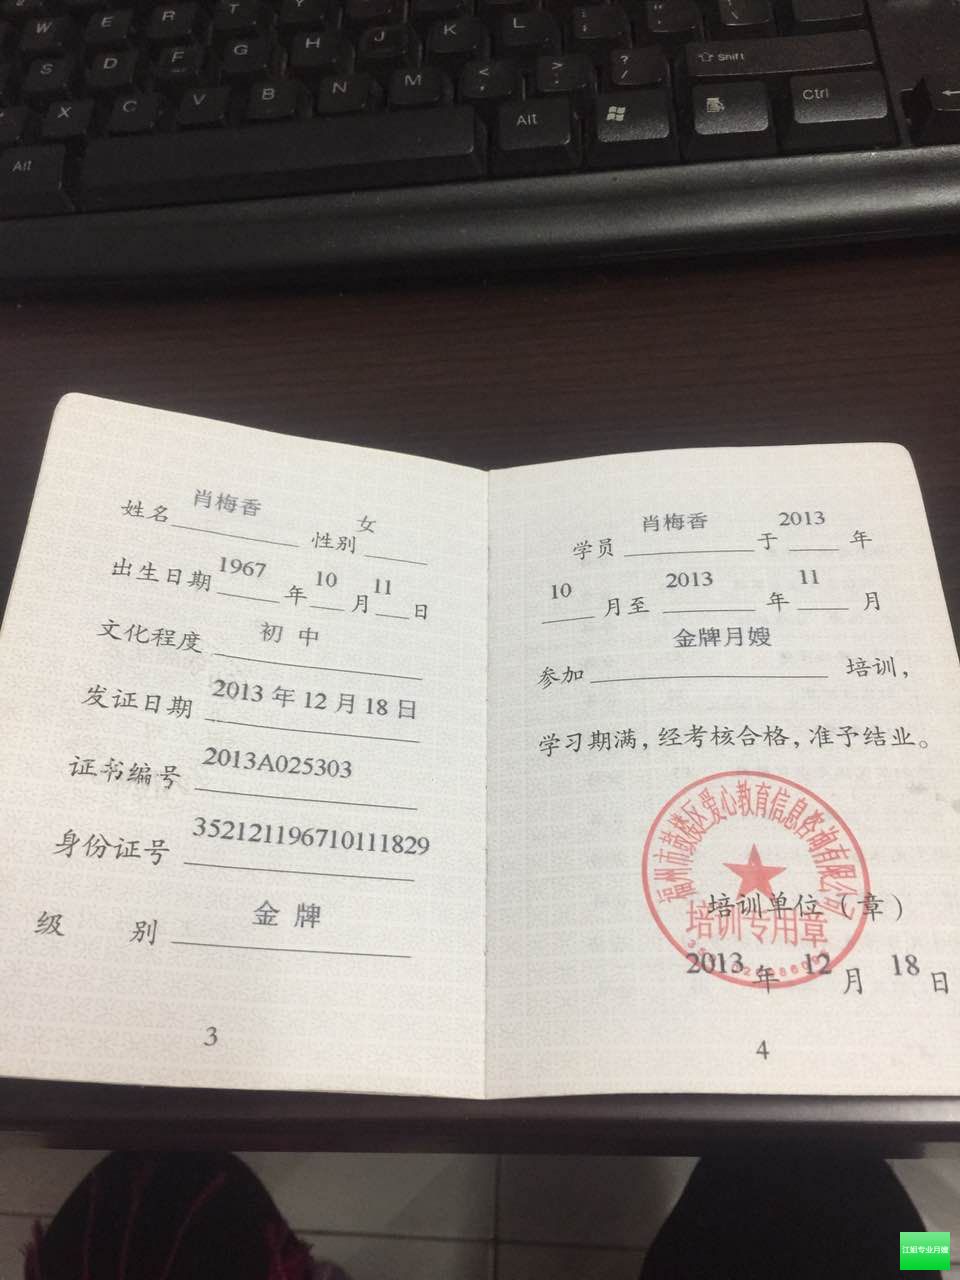 W E R T Y U I O P
S D F G H J K L
X C V B N M < , > . ? / Shift
Alt Alt Ctrl
姓名 肖梅香 性别 女
出生日期 1967 年 10 月 11 日
文化程度 初中
发证日期 2013年12月18日
证书编号 2013A025303
身份证号 352121196710111829
级别 金牌
3
学员 肖梅香 于 2013 年
10 月至 2013 年 11 月
参加 金牌月嫂 培训，
学习期满，经考核合格，准予结业。
福州市鼓楼区爱心教育信息咨询有限公司
培训专用章
培训单位（章）
2013 年 12 月 18 日
4
江姐专业月嫂